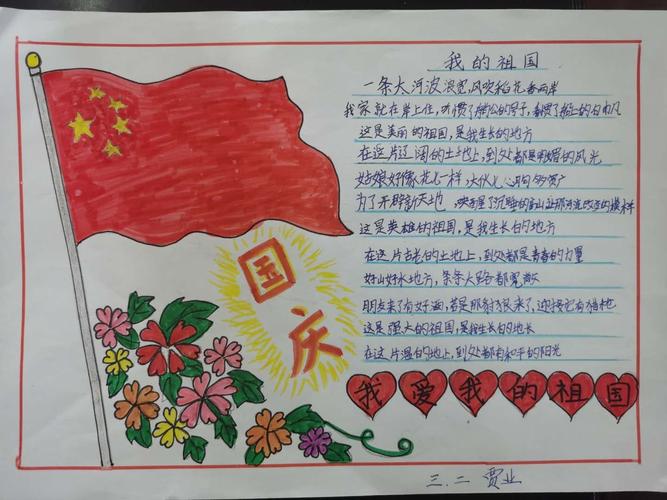 我的祖国
一条大河波浪宽,风吹稻花香两岸
我家就在岸上住,听惯了艄公的号子,看惯了船上的白帆
这是美丽的祖国,是我生长的地方
在这片辽阔的土地上,到处都是明媚的风光
姑娘好像花一样 大伙儿心胸多宽广
为了开辟新天地 唤醒了沉睡的高山 让那河流改变的模样
这是英雄的祖国,是我生长的地方
在这片古老的土地上,到处都是青春的力量
好山好水地方,条条大路都宽敞
朋友来了有好酒,若是那豺狼来了,迎接它有猎枪
这是强大的祖国,是我生长的地
在这片温的地上,到处都有和平的阳光
国庆
我爱我的祖国
三.二 贾业